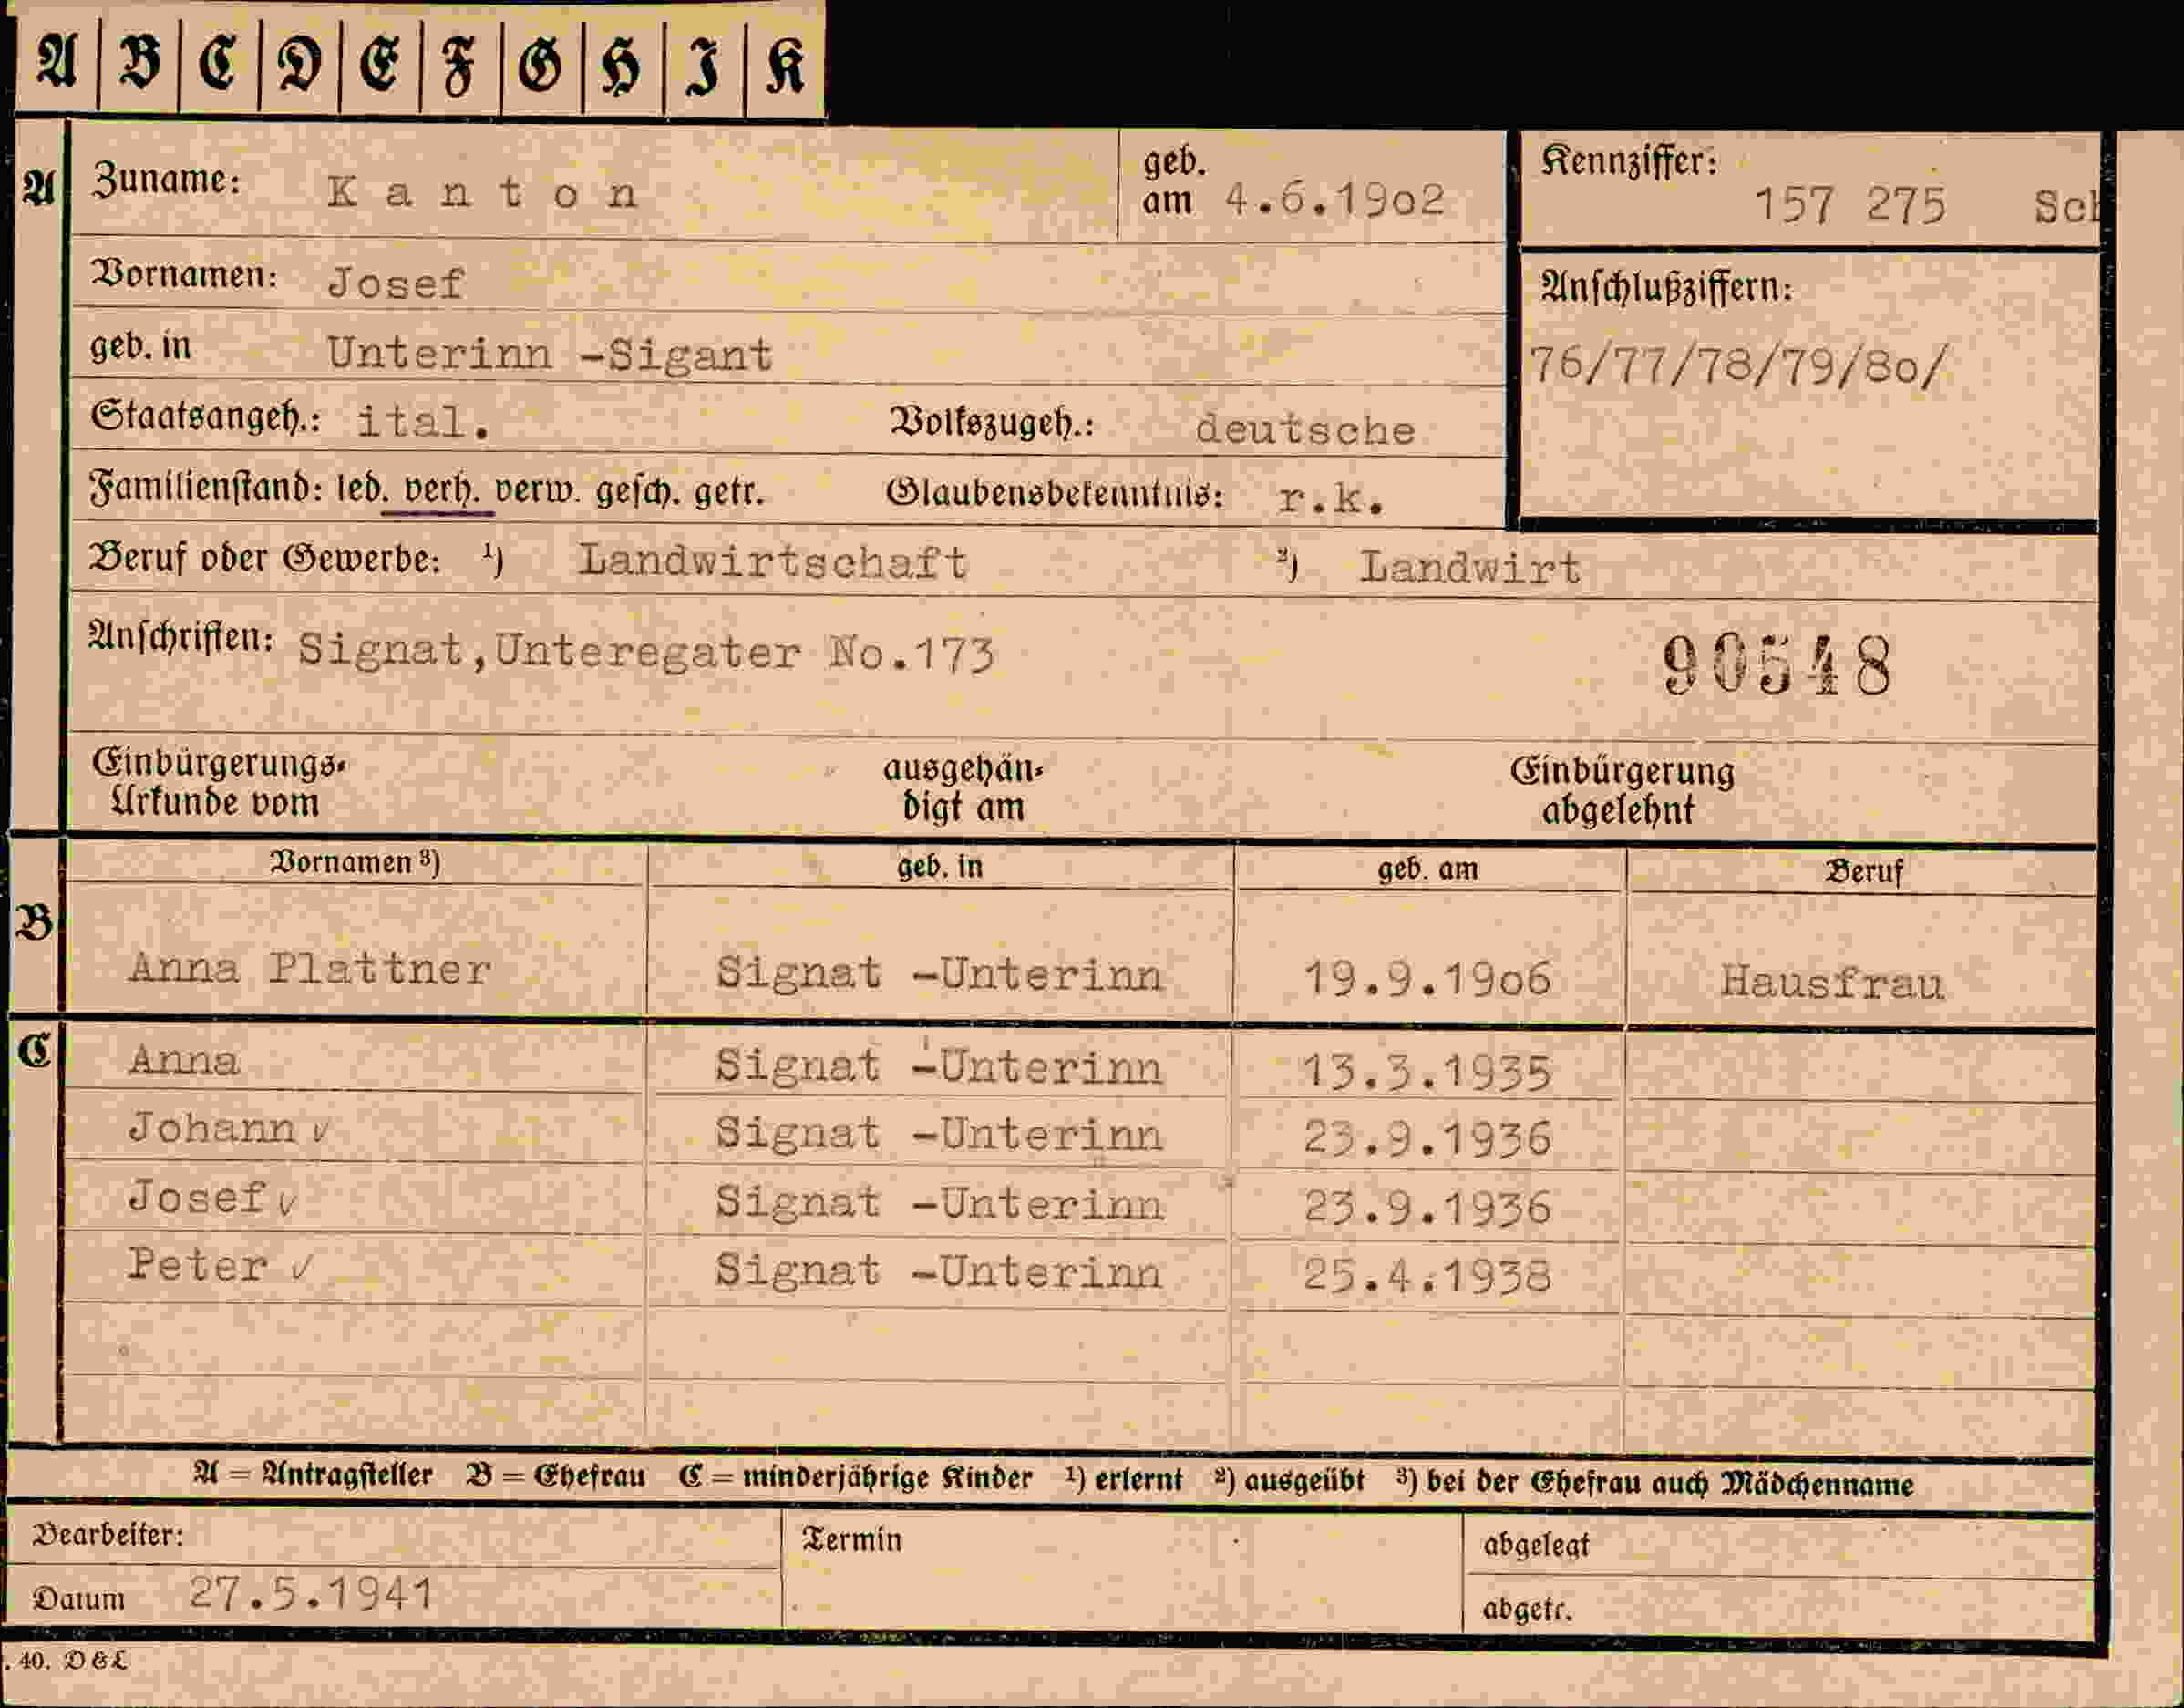 A B C D E F G H I K
A Zuname: Kanton geb. am 4.6.19o2 Kennziffer: 157 275
Vornamen: Josef Anschlußziffern:
geb. in Unterinn -Sigant 76/77/78/79/8o/
Staatsangeh.: ital. Volkszugeh.: deutsche
Familienstand: led. verh. verw. gesch. getr. Glaubensbekenntnis: r.k.
Beruf oder Gewerbe: ¹) Landwirtschaft ²) Landwirt
Anschriften: Signat,Unteregater No.173 90548
Einbürgerungs- ausgehän- Einbürgerung
Urkunde vom digt am abgelehnt
Vornamen ³) geb. in geb. am Beruf
B Anna Plattner Signat -Unterinn 19.9.19o6 Hausfrau
C Anna Signat -Unterinn 13.3.1935
Johann ✓ Signat -Unterinn 23.9.1936
Josef ✓ Signat -Unterinn 23.9.1936
Peter ✓ Signat -Unterinn 25.4.1938
A = Antragsteller B = Ehefrau C = minderjährige Kinder ¹) erlernt ²) ausgeübt ³) bei der Ehefrau auch Mädchenname
Bearbeiter: Termin abgelegt
Datum 27.5.1941 abgetr.
. 40. D & L